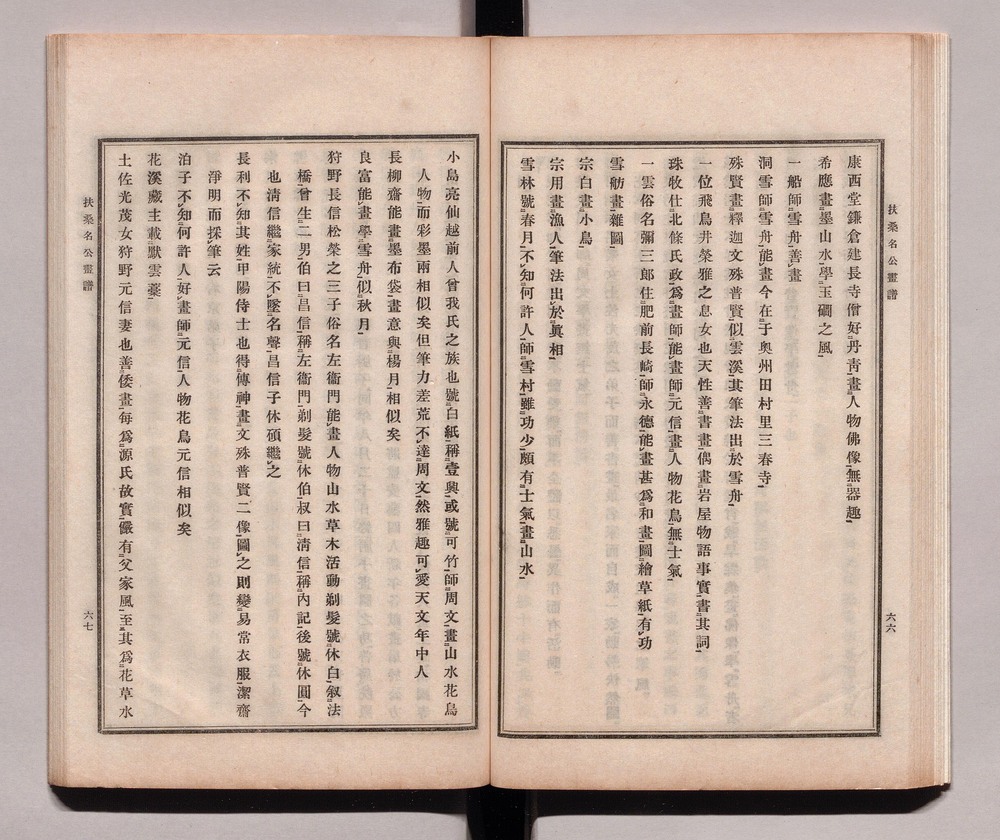 扶桑名公畫譜
六六
康西堂鎌倉建長寺僧好丹靑畫人物佛像無器趣
希應畫墨山水學玉礀之風
一船師雪舟善畫
洞雪師雪舟能畫今在于奧州田村里三春寺
殊賢畫釋迦文殊普賢似雲溪其筆法出於雪舟
一位飛鳥井榮雅之息女也天性善書畫偶畫岩屋物語事實書其詞
珠牧仕北條氏政爲畫師能畫師元信畫人物花鳥無士氣
一雲俗名彌三郎住肥前長崎師永德能畫甚爲和畫圖繪草紙有功
雪舫畫雜圖
宗白畫小鳥
宗用畫漁人筆法出於眞相
雪林號春月不知何許人師雪村雖功少頗有士氣畫山水
小島亮仙越前人曾我氏之族也號白紙稱壹興或號可竹師周文畫山水花鳥
人物而彩墨兩相似矣但筆力差荒不達周文然雅趣可愛天文年中人
長柳齋能畫墨布袋畫意與楊月相似矣
良富能畫學雪舟似秋月
狩野長信松榮之三子俗名左衞門能畫人物山水草木活動剃髮號休白叙法
橋曾生二男伯曰昌信稱左衞門剃髮號休伯叔曰淸信稱內記後號休圓今
也淸信繼家統不墜名聲昌信子休碩繼之
長利不知其姓甲陽侍士也得傳神畫文殊普賢二像圖之則變易常衣服潔齋
淨明而採筆云
泊子不知何許人好畫師元信人物花鳥元信相似矣
花溪藏主載默雲藁
土佐光茂女狩野元信妻也善倭畫每爲源氏故實儼有父家風至其爲花草水
扶桑名公畫譜
六七